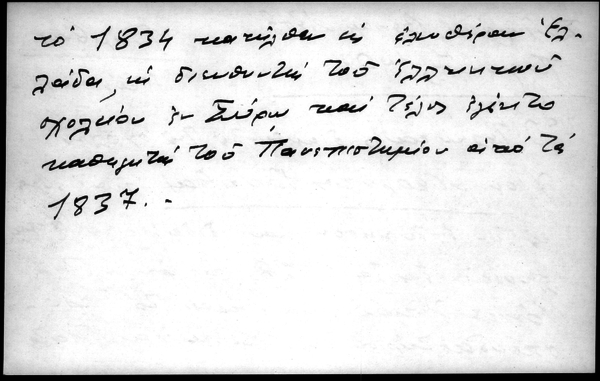 τό 1834 κατῆλθεν εἰς ἐλευθέραν Ἑλ-
λάδα, ὡς διευθυντής τοῦ Ἑλληνικοῦ
σχολείου ἐν Σύρῳ καί τέλος ἐγένετο
καθηγητής τοῦ Πανεπιστημίου ἀπό τό
1837.-